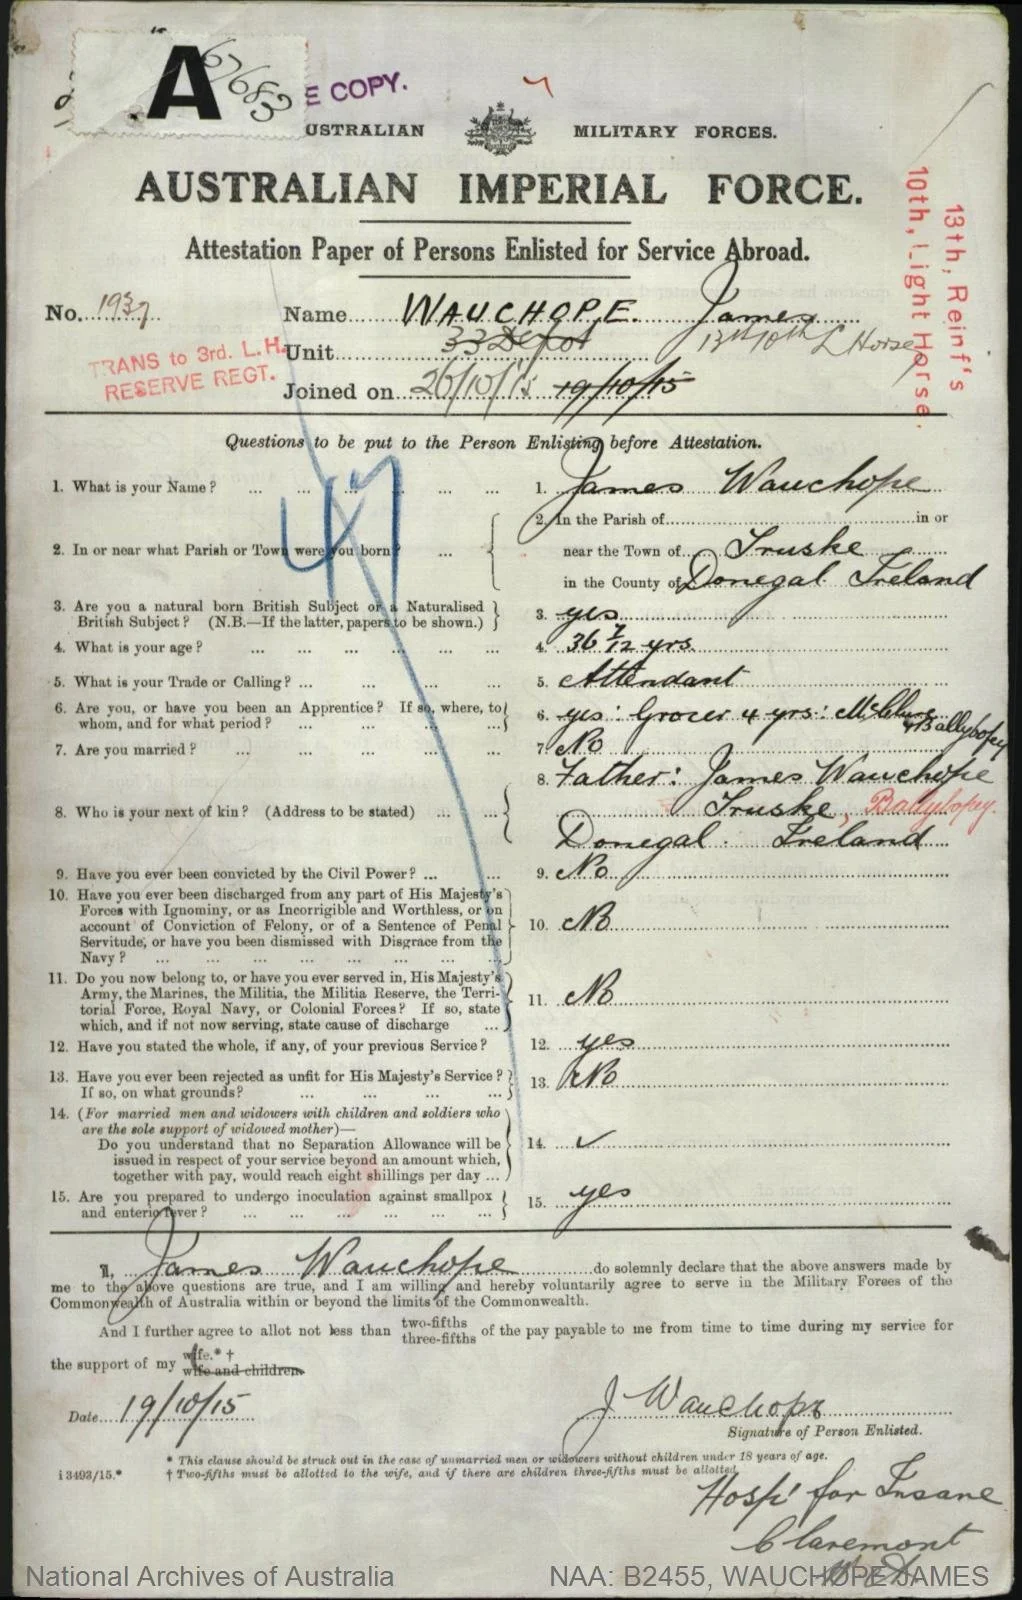 A 67683
E COPY.
USTRALIAN MILITARY FORCES.
AUSTRALIAN IMPERIAL FORCE.
Attestation Paper of Persons Enlisted for Service Abroad.
13th, Reinf's
10th, Light Horse.
No. 1937 Name WAUCHOPE. James
TRANS to 3rd. L.H.
RESERVE REGT.
Unit 33 Depot 13th 10th L Horse
Joined on 26/10/15 19/10/15
Questions to be put to the Person Enlisting before Attestation.
47
1. What is your Name? ... ... ... ... ... 1. James Wauchope
2. In or near what Parish or Town were you born? ... 2. In the Parish of in or
near the Town of Truske
in the County of Donegal Ireland
3. Are you a natural born British Subject or a Naturalised
British Subject? (N.B.—If the latter, papers to be shown.) 3. yes
4. What is your age? ... ... ... ... ... 4. 36 7/12 yrs.
5. What is your Trade or Calling? ... ... ... ... 5. Attendant
6. Are you, or have you been an Apprentice? If so, where, to
whom, and for what period? ... ... ... ... 6. yes: Grocer 4 yrs: McClure Ballybofey
7. Are you married? ... ... ... ... ... 7. No
8. Who is your next of kin? (Address to be stated) ... ... 8. Father: James Wauchope
Truske, Ballybofey.
Donegal. Ireland
9. Have you ever been convicted by the Civil Power? ... ... 9. No
10. Have you ever been discharged from any part of His Majesty's
Forces with Ignominy, or as Incorrigible and Worthless, or on
account of Conviction of Felony, or of a Sentence of Penal
Servitude, or have you been dismissed with Disgrace from the
Navy? ... ... ... ... ... ... ... 10. No
11. Do you now belong to, or have you ever served in, His Majesty's
Army, the Marines, the Militia, the Militia Reserve, the Terri-
torial Force, Royal Navy, or Colonial Forces? If so, state
which, and if not now serving, state cause of discharge ... 11. No
12. Have you stated the whole, if any, of your previous Service? 12. yes
13. Have you ever been rejected as unfit for His Majesty's Service?
If so, on what grounds? ... ... ... ... 13. No
14. (For married men and widowers with children and soldiers who
are the sole support of widowed mother)—
Do you understand that no Separation Allowance will be
issued in respect of your service beyond an amount which,
together with pay, would reach eight shillings per day ... 14. ✓
15. Are you prepared to undergo inoculation against smallpox
and enteric fever? ... ... ... ... ... 15. yes
I, James Wauchope do solemnly declare that the above answers made by
me to the above questions are true, and I am willing and hereby voluntarily agree to serve in the Military Forces of the
Commonwealth of Australia within or beyond the limits of the Commonwealth.
And I further agree to allot not less than two-fifths
three-fifths of the pay payable to me from time to time during my service for
the support of my wife.* †
wife and children.
Date 19/10/15
J Wauchope
Signature of Person Enlisted.
* This clause should be struck out in the case of unmarried men or widowers without children under 18 years of age.
i 3493/15.* † Two-fifths must be allotted to the wife, and if there are children three-fifths must be allotted.
Hosp' for Insane
Claremont
National Archives of Australia NAA: B2455, WAUCHOPE JAMES